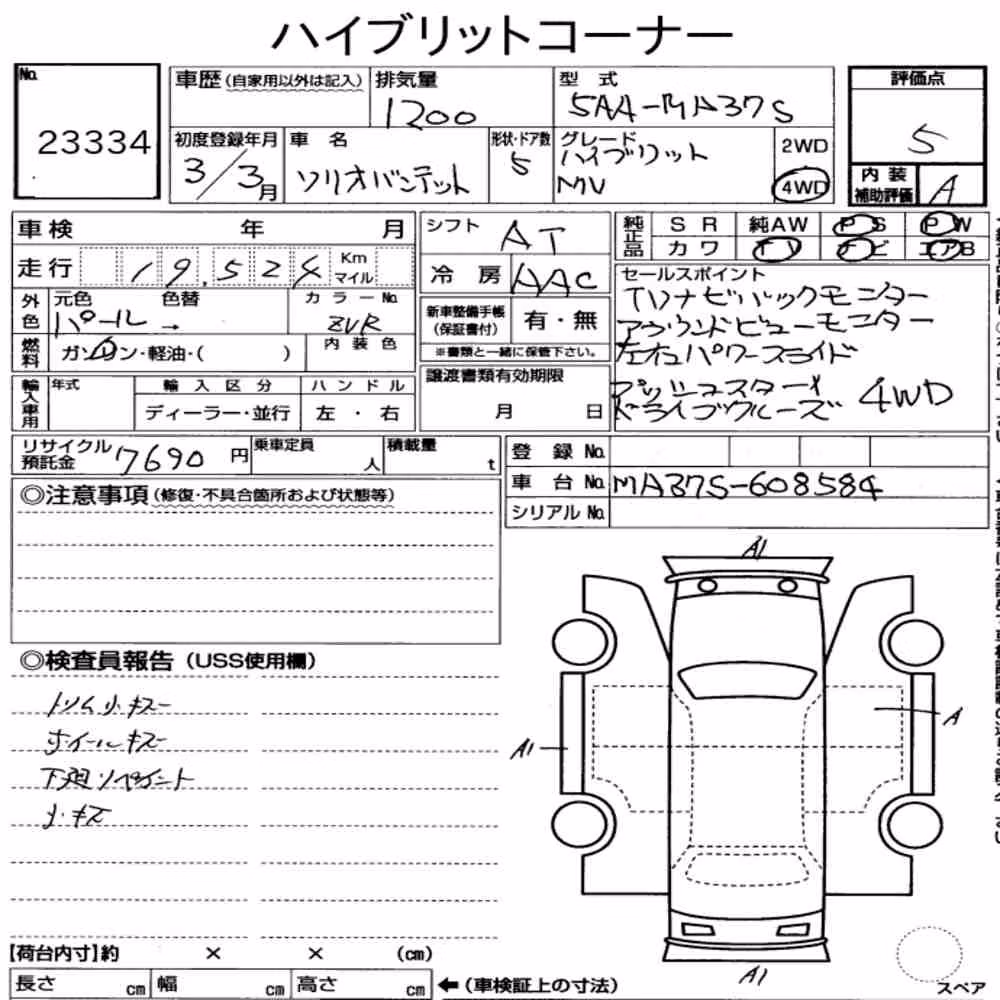 ハイブリットコーナー
No.
23334
車歴(自家用以外は記入)
排気量
1200
型 式
5AA-MA37S
評価点
5
初度登録年月
3/3月
車 名
ソリオバンデット
形状・ドア数
5
グレード
ハイブリット
MV
2WD
4WD
内 装
補助評価
A
車検 年 月
シフト
AT
純正品
SR 純AW PS PW
カワ TV ナビ エアB
走行 19,524 Km
マイル
冷 房
AAC
セールスポイント
TVナビバックモニター
アラウンドビューモニター
左右パワースライド
プッシュスタート
ドライブクルーズ 4WD
外色
元色 色替
パール →
カラーNo.
ZVR
新車整備手帳
(保証書付)
有・無
※書類と一緒に保管下さい。
燃料
ガソリン・軽油・( )
内 装 色
譲渡書類有効期限
月 日
輸入車用
年式
輸 入 区 分
ハ ン ド ル
ディーラー・並行
左 ・ 右
リサイクル
預託金
7690 円
乗車定員
人
積載量
t
登 録 No.
車 台 No.
MA37S-608584
シリアル No.
◎注意事項(修復・不具合箇所および状態等)
◎検査員報告(USS使用欄)
トリム小キズ
ホイールキズ
下廻リペイント
小キズ
A1
A1
A
A1
【荷台内寸】約 × × (cm)
長さ cm 幅 cm 高さ cm ←(車検証上の寸法)
スペア